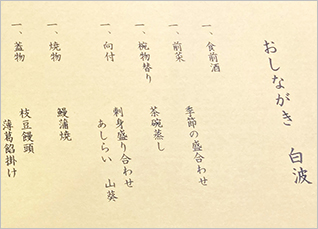 おしながき　白波
一、食前酒
一、前菜　季節の盛合わせ
一、椀物替り　茶碗蒸し
一、向付　刺身盛り合わせ
あしらい　山葵
一、焼物　鰻蒲焼
一、蓋物　枝豆饅頭
薄葛餡掛け